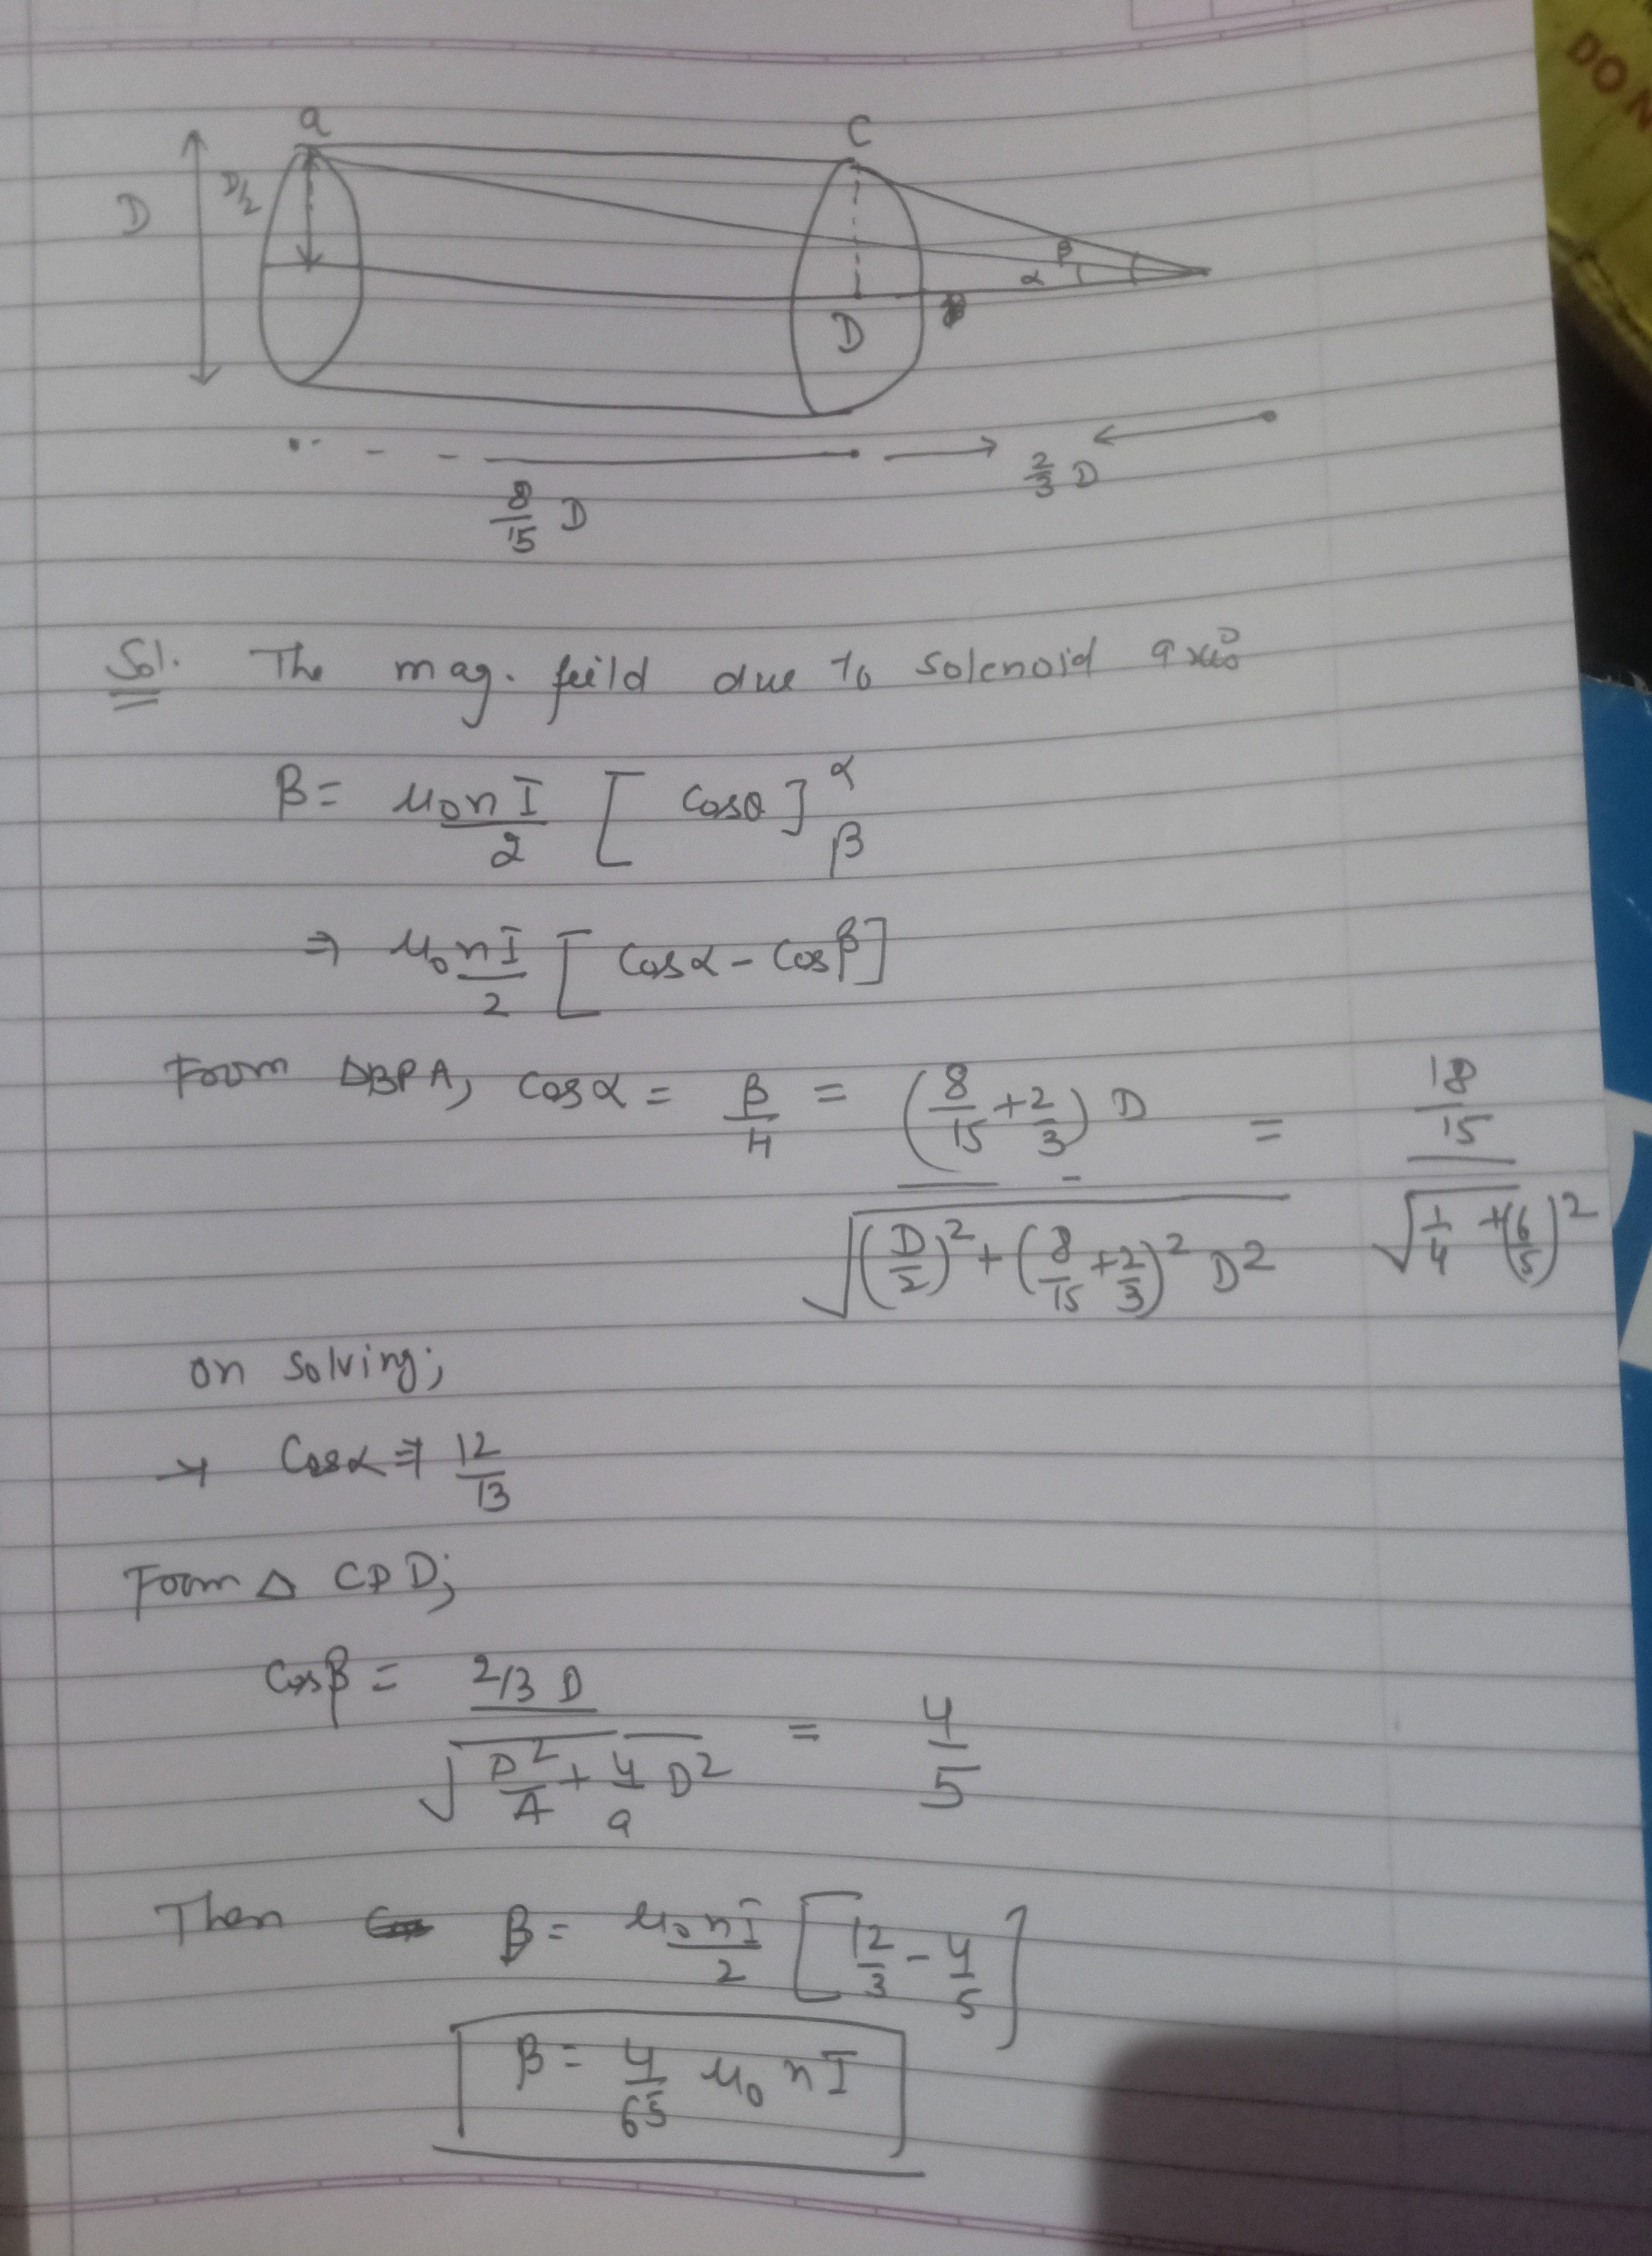 DO N
a
C
D
D/2
β
α
D
2/3 D
8/15 D
Sol. The mag. feild due to solenoid axis
B = μ0nI/2 [cosθ]^α_β
⇒ μ0nI/2 [cosα - cosβ]
From ΔBPA, cosα = B/H = (8/15 + 2/3) D / √((D/2)² + (8/15 + 2/3)² D²) = 18/15 / √(1/4 + (6/5)²)
on solving;
→ cosα ⇒ 12/13
From Δ CPD;
cosβ = 2/3 D / √(D²/4 + 4/9 D²) = 4/5
Then B = μ0nI/2 [12/3 - 4/5]
B = 4/65 μ0 nI